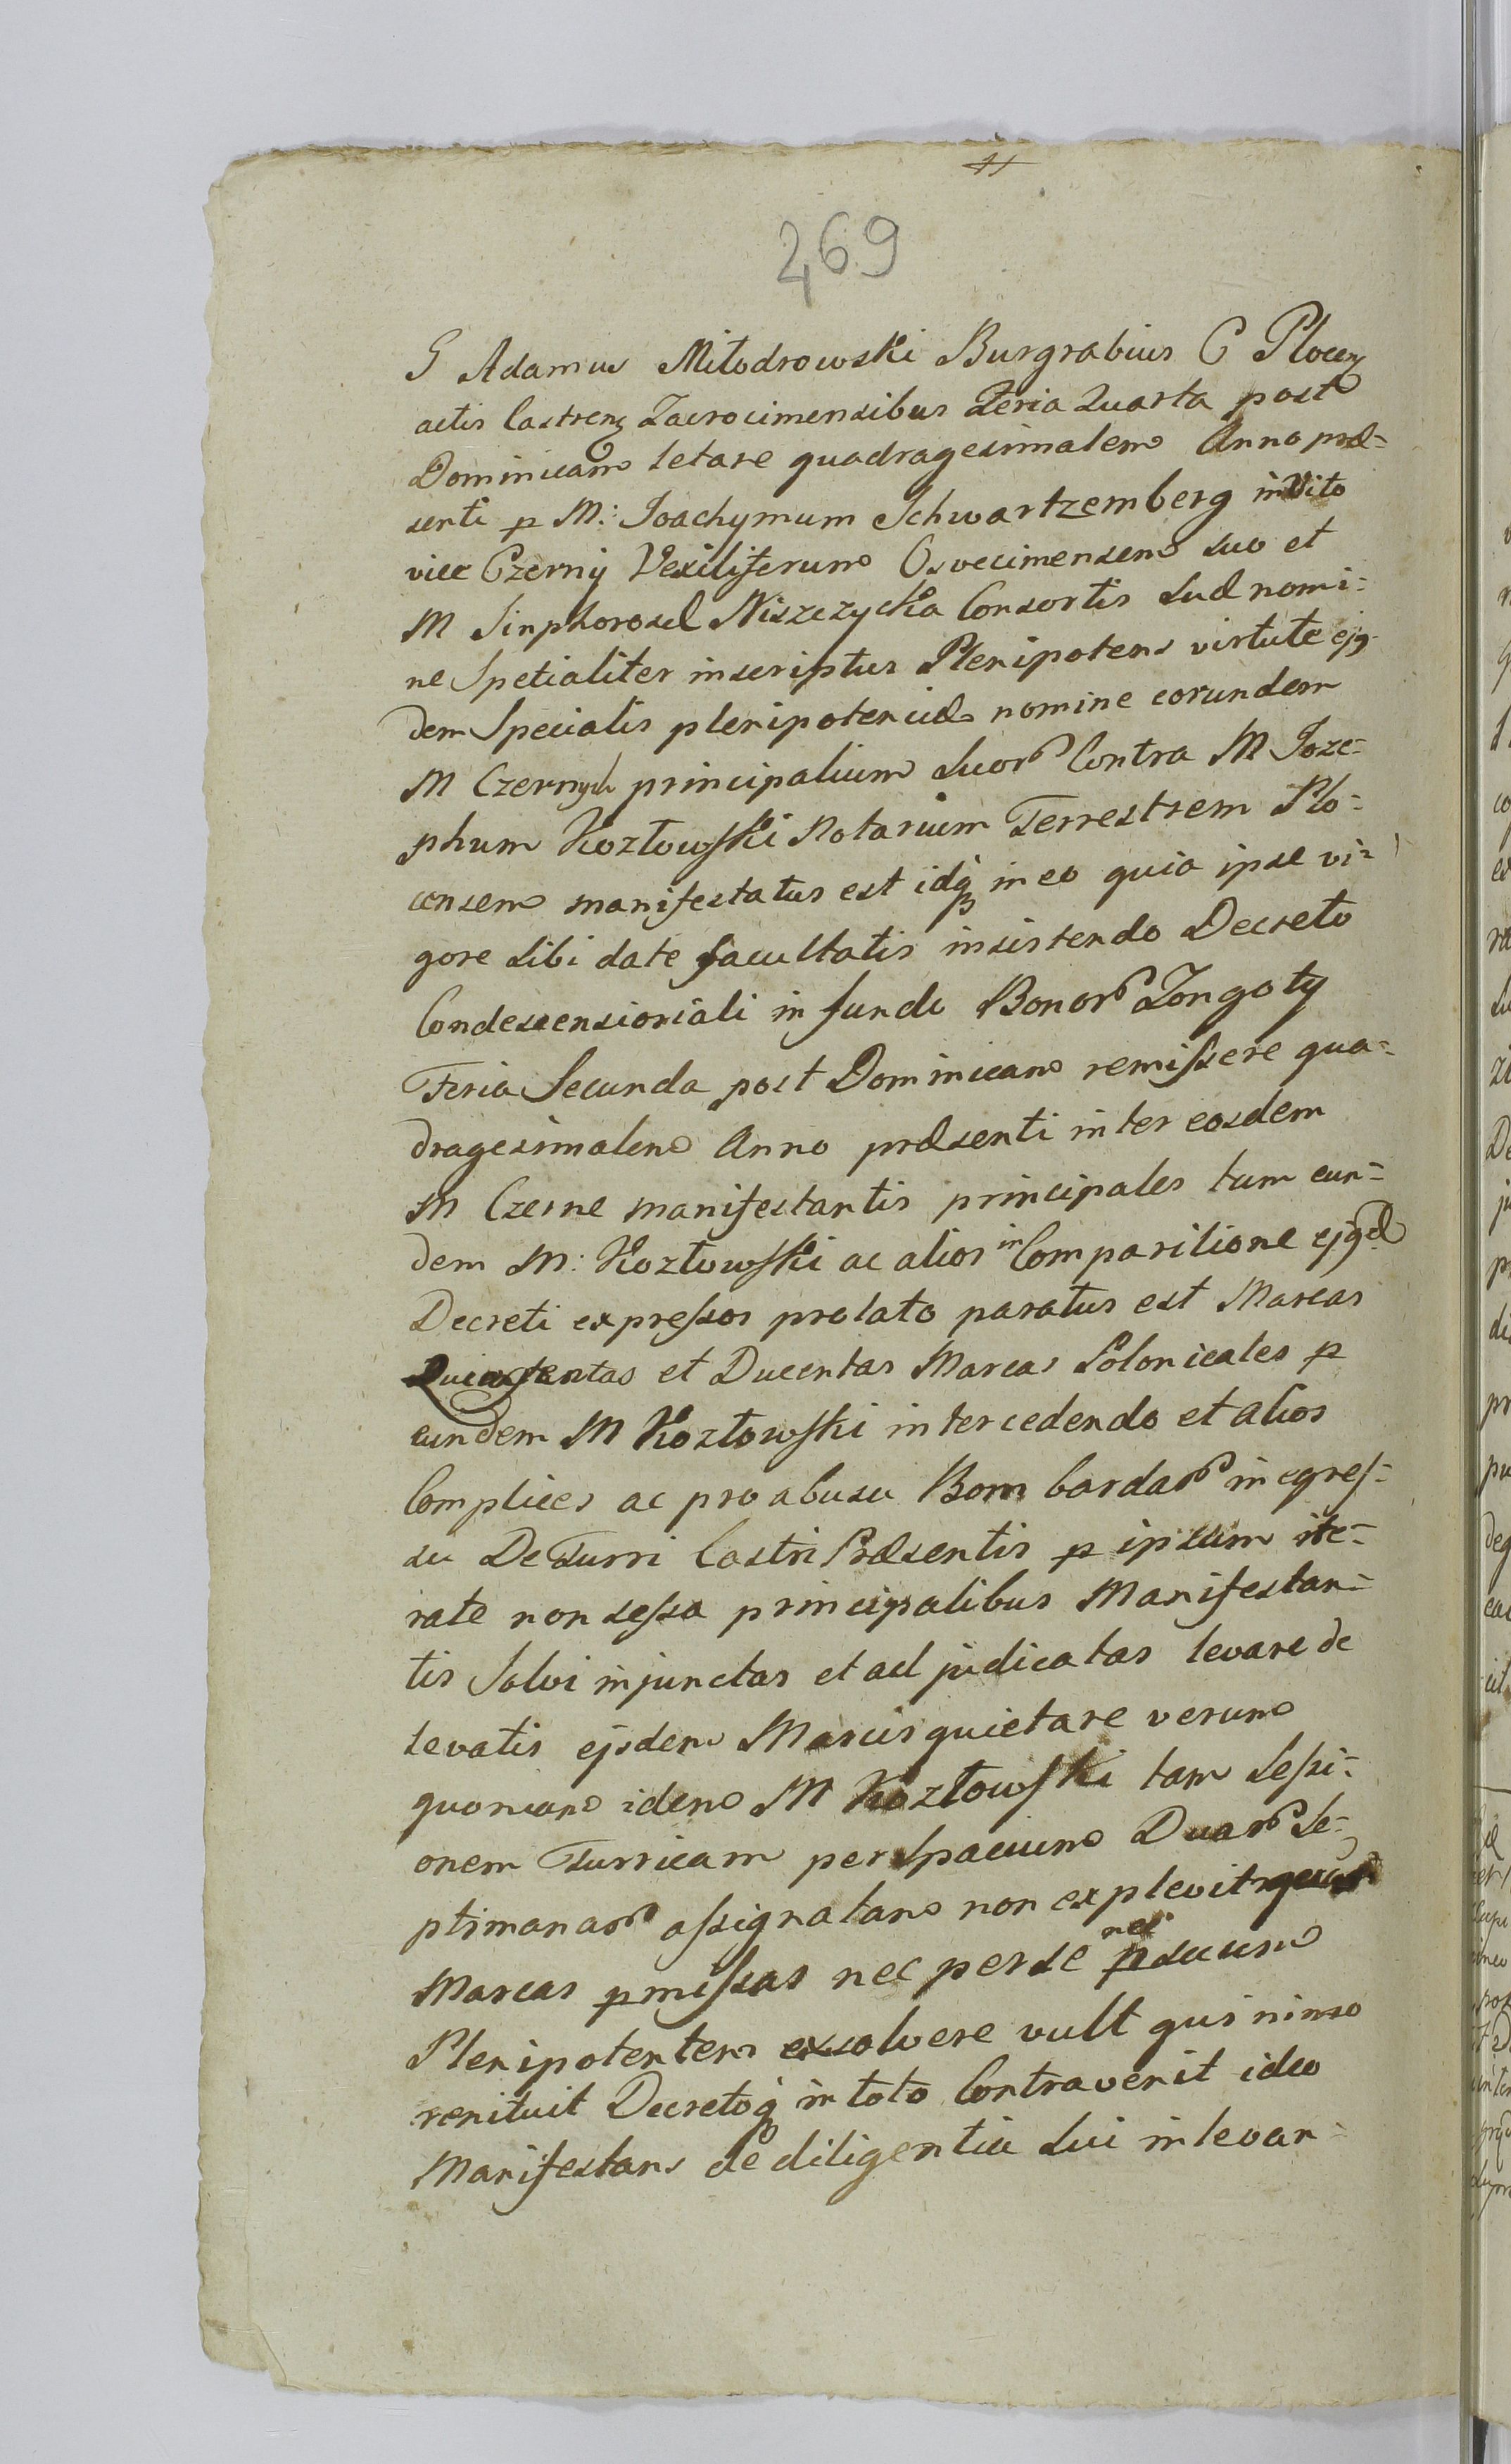 269
G Adamus Miłodrowski Burgrabius C Plocen
actis Castren Zacrocimensibus Feria Quarta post
Dominicam letare quadragesimalem Anno præ=
senti p M: Joachymum Schwartzemberg in Wito
vice Czerny Vexiliferum Osvecimensem suo et
M Sinphorosæ Niszczycka Consortis suæ nomi=
ne Spetialiter inscriptus Plenipotens virtute ejq
dem Specialis plenipotenciæ nomine eorundem
M Czernych principalium suor Contra M Joze=
phum Kozłowski Notarium Terrestrem Plo=
censem manifestatus est idq in eo quia ipse vi=
gore sibi date facultatis insistendo Decreto
Condescensioriali in fundo Bonor Zongoty
Feria Secunda post Dominicam remissere qua=
dragesimalem Anno præsenti inter eosdem
M Czerne manifestantis principales tum eun=
dem M: Kozłowski ac alios in Comparitione ejqd
Decreti expressos prolato paratus est Marcas
et Ducentas Marcas Polonicales p
eundem M Kozłowski intercedendo et alios
Complices ac pro abusu Bombardar in egres=
su De Turri Castri Præsentis p ipsum ite=
rate non sessa principalibus Manifestan=
tis Solvi injunctas et adjudicatas levare de
levatis ejsdem Marcis quietare verum
quoniam idem M Kozłowski tam Sessi=
onem Turricam per Spacium Duar Se=
ptimanar assignatam non explevit
Marcas pmissas nec per se nec p suum
Plenipotentem exsolvere vult quis nimo
renituit Decretoq in toto Contravenit ideo
Manifestans de diligentia sui in levan=